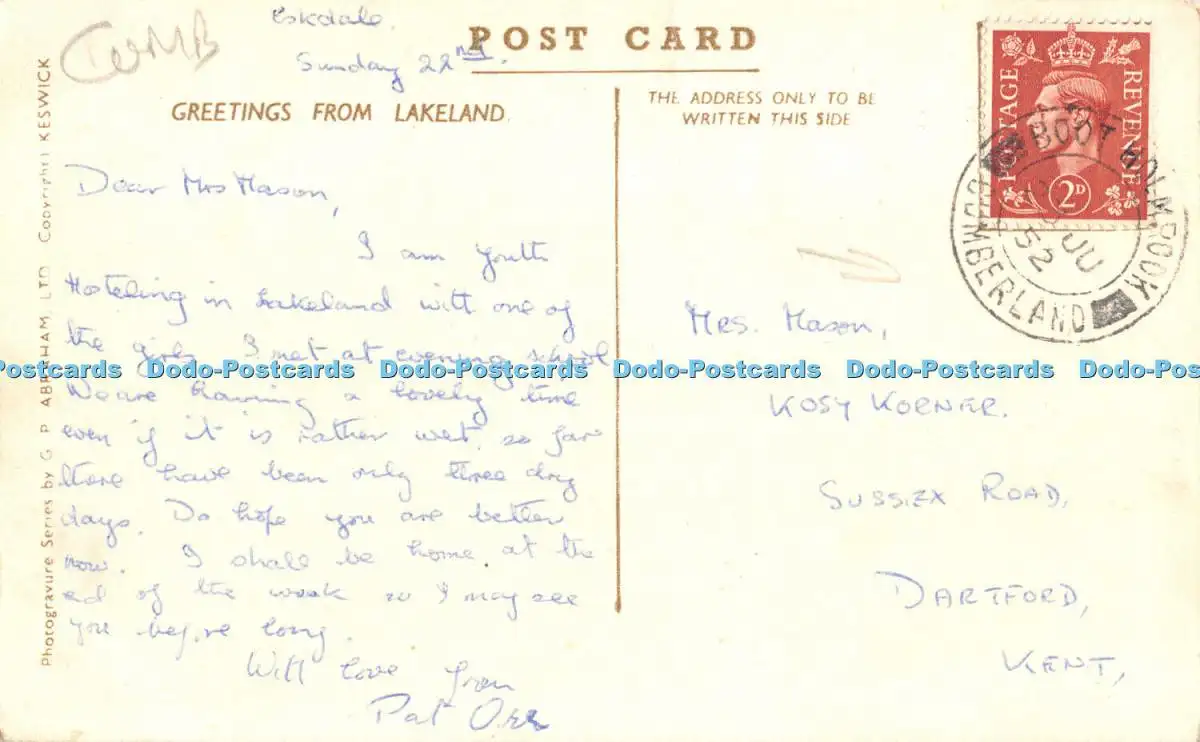 CUMB
Eskdale.
Sunday 22nd.
POST CARD
GREETINGS FROM LAKELAND
THE ADDRESS ONLY TO BE
WRITTEN THIS SIDE
POSTAGE REVENUE
2D
BOOT HOLMROOK
CUMBERLAND
JU
52
Dear Mrs Mason,
I am Youth
Hosteling in Lakeland with one of
the girls I met at evening school
We are having a lovely time
even if it is rather wet. so far
there have been only three dry
days. Do hope you are better
now. I shall be home at the
end of the week so I may see
you before long.
With love from
Pat Orr
Mrs. Mason,
KOSY KORNER.
SUSSEX ROAD,
DARTFORD,
KENT,
Photogravure Series by G P ABRAHAM, LTD Copyright KESWICK
Postcards Dodo-Postcards Dodo-Postcards Dodo-Postcards Dodo-Postcards Dodo-Pos